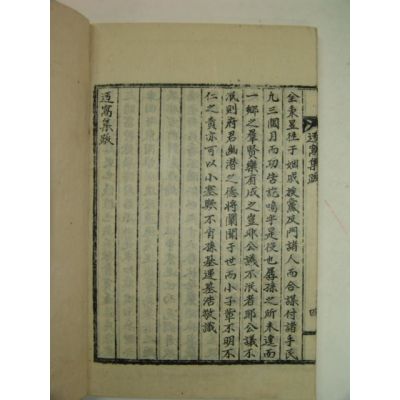 迃窩集跋
四
金東昱徃于姻戚及門諸人而合謀付諸手民
九三個月而功告訖嗚乎是役也孱孫之所未遑而
一鄕之羣賢樂有成之豈非公議不泯者耶公議不
泯則府君幽潜之德將闡聞于世而小子輩不明不
仁之責亦可以小塞歟不肖孫基運基浩敬識
迃窩集跋